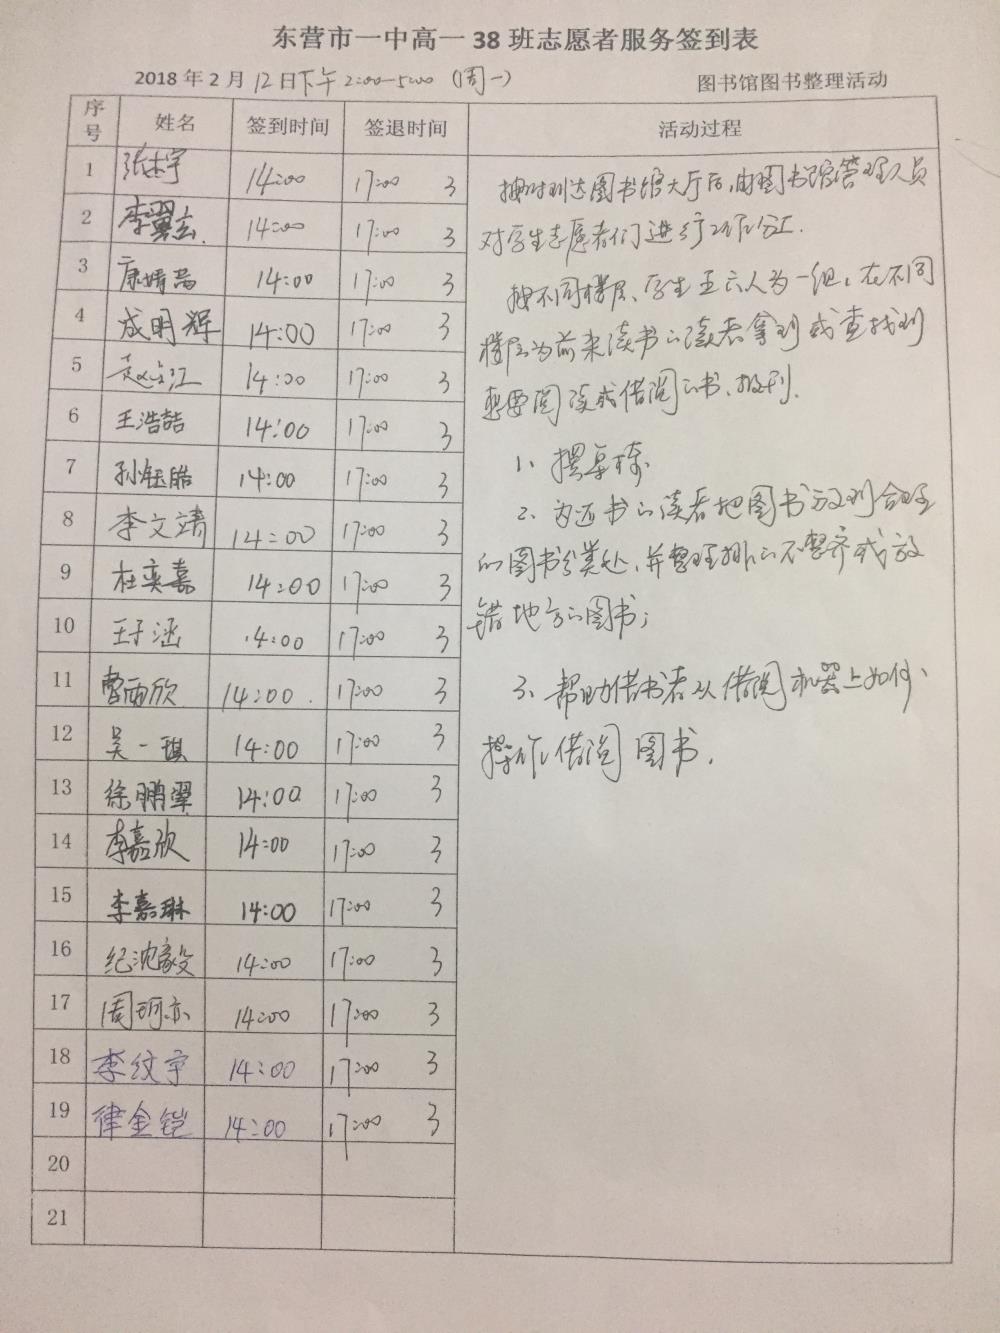 东营市一中高一 38 班志愿者服务签到表
2018 年 2 月 12 日下午 2:00-5:00 (周一) 图书馆图书整理活动
序号 姓名 签到时间 签退时间 活动过程
1 14:00 17:00 3
2 李翼 14:00 17:00 3
3 康婧 14:00 17:00 3
4 成明辉 14:00 17:00 3
5 赵 江 14:00 17:00 3
6 王浩喆 14:00 17:00 3
7 孙钰皓 14:00 17:00 3
8 李文靖 14:00 17:00 3
9 杜奕嘉 14:00 17:00 3
10 王子涵 14:00 17:00 3
11 曹雨欣 14:00 17:00 3
12 吴一琪 14:00 17:00 3
13 徐鹏翠 14:00 17:00 3
14 李嘉欣 14:00 17:00 3
15 李嘉琳 14:00 17:00 3
16 纪沈毅 14:00 17:00 3
17 周珂亦 14:00 17:00 3
18 李纹宇 14:00 17:00 3
19 律金铠 14:00 17:00 3
20
21
按时到达图书馆大厅后,由图书馆管理人员
对学生志愿者们进行工作分工.
按不同楼层、学生五六人为一组,在不同
楼层为前来读书的读者拿到或查找到
想要阅读或借阅的书、报刊.
1、摆桌椅
2、为还书的读者把图书放到合理
的图书分类处,并整理排的不整齐或放
错地方的图书;
3、帮助借书者从借阅机器上如何
操作借阅图书.